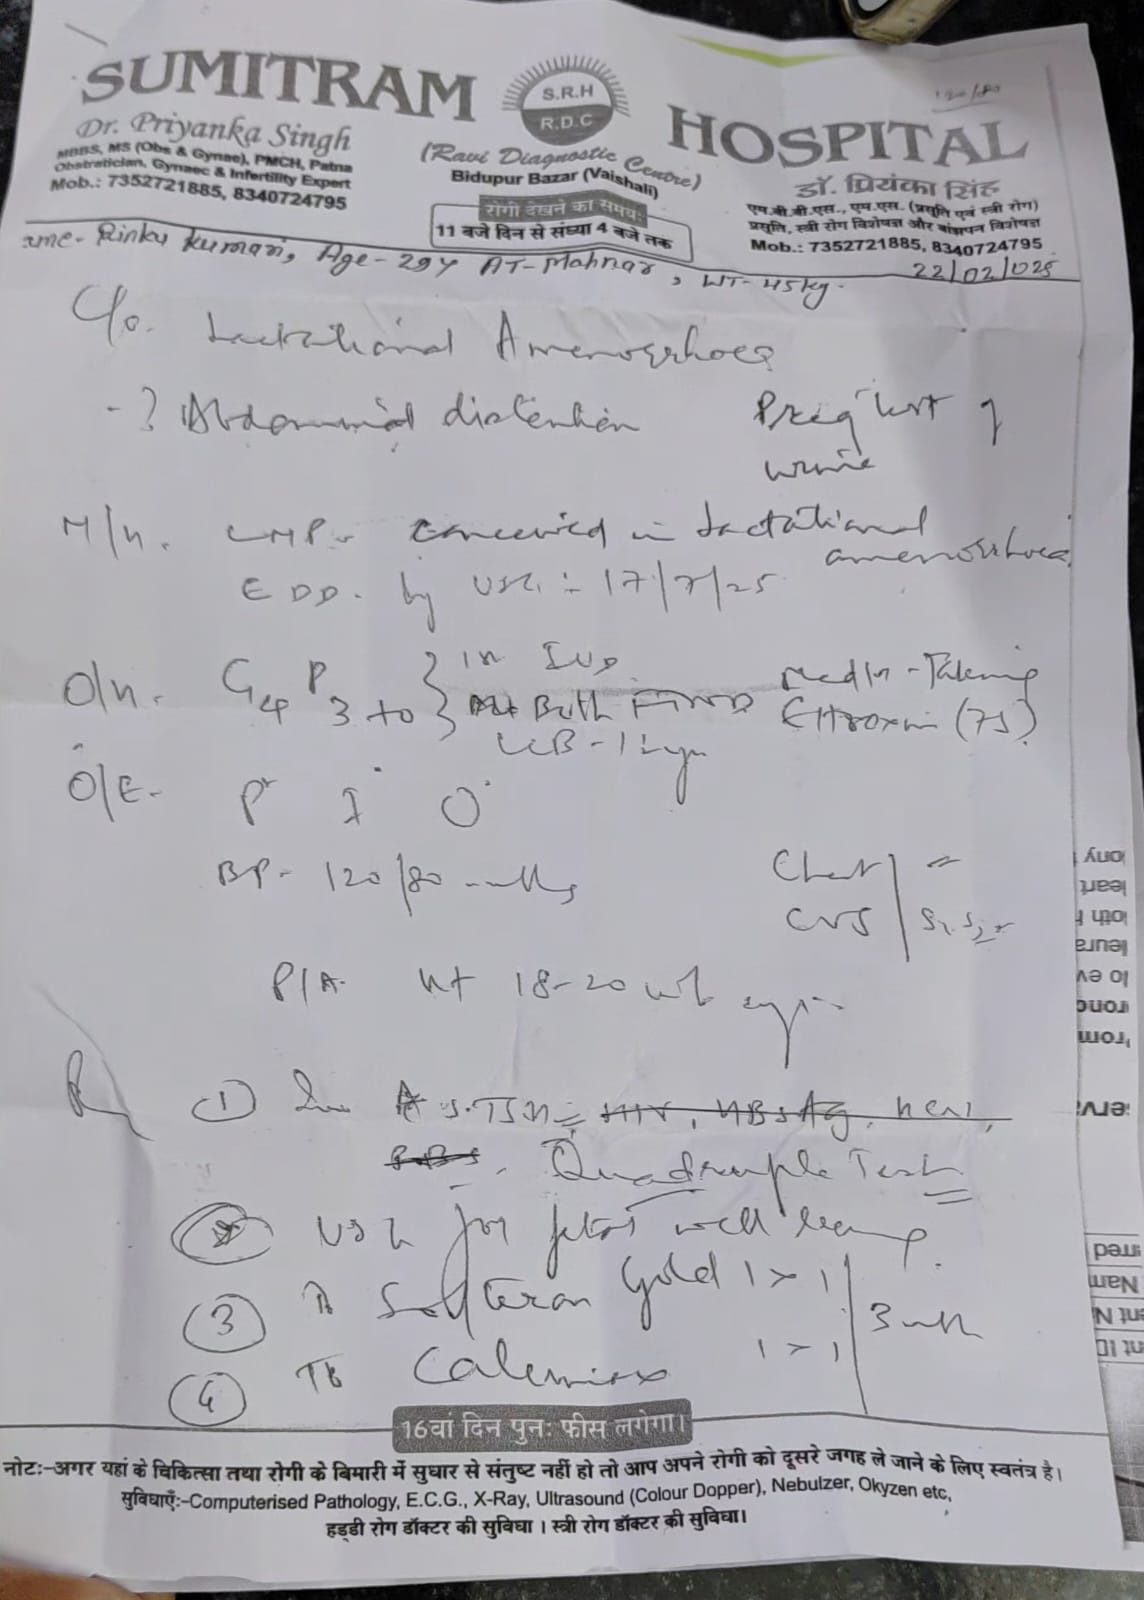 120/80
SUMITRAM HOSPITAL
S.R.H
R.D.C
Dr. Priyanka Singh
MBBS, MS (Obs & Gynae), PMCH, Patna
Obstratician, Gynaec & Infertility Expert
Mob.: 7352721885, 8340724795
(Ravi Diagnostic Centre)
Bidupur Bazar (Vaishali)
रोगी देखने का समय:
11 बजे दिन से संध्या 4 बजे तक
डॉ. प्रियंका सिंह
एम.बी.बी.एस., एम.एस. (प्रसूति एवं स्त्री रोग)
प्रसूति, स्त्री रोग विशेषज्ञ और बांझपन विशेषज्ञ
Mob.: 7352721885, 8340724795
Rinku Kumari, Age - 29y AT - Mahnar, WT - 45kg.
22/02/025
C/o. Lactational Amenorrhoea
- ? Abdominal distention
Preg test of
urine
M/H. LMP - conceived in Lactational
amenorrhoea
EDD. by USG :- 17/7/25
O/H. G4 P3+0 } IUD
Both
LCB - 1
Taking
Eltroxin (75)
O/E- P I O
BP - 120/80 mmHg
Chest
CVS S1, S2
P/A. 18-20 wk
Rx
1 S. TSH HIV, HBsAg, HCV,
Quadruple Test
USG for fetal well being.
3 Tb Gold 1 > 1
3
4 Tb 1 > 1
16वां दिन पुन: फीस लगेगा।
नोट:-अगर यहां के चिकित्सा तथा रोगी के बिमारी में सुधार से संतुष्ट नहीं हो तो आप अपने रोगी को दूसरे जगह ले जाने के लिए स्वतंत्र है।
सुविधाएँ:-Computerised Pathology, E.C.G., X-Ray, Ultrasound (Colour Dopper), Nebulzer, Okyzen etc,
हड्डी रोग डॉक्टर की सुविधा । स्त्री रोग डॉक्टर की सुविधा।